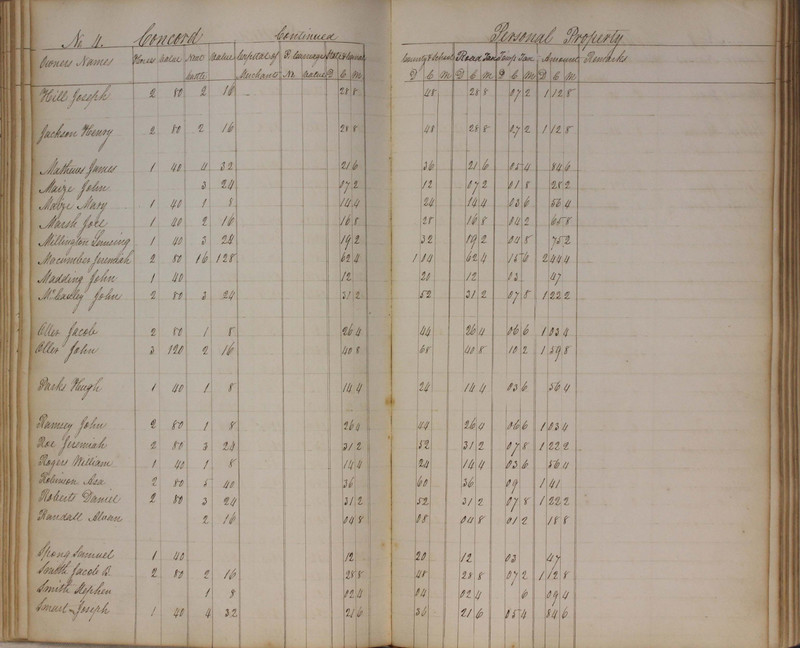 No 4. Concord Continued Personal Property
Owners Names Horses Value Neat Cattle Value Capital of Merchants & Carriages No. Value State & Canal D C M County & School D C M Road Tax D C M Temp Tax D C M Amount D C M Remarks
Hill Joseph 2 80 2 16 28 8 48 28 8 07 2 1 12 8
Jackson Henry 2 80 2 16 28 8 48 28 8 07 2 1 12 8
Mathews James 1 40 4 32 21 6 36 21 6 05 4 84 6
Maize John 3 24 07 2 12 07 2 01 8 28 2
Maize Mary 1 40 1 8 14 4 24 14 4 03 6 56 4
Marsh Joel 1 40 2 16 16 8 28 16 8 04 2 65 8
Millington 1 40 3 24 19 2 32 19 2 04 8 75 2
Macumber Jeremiah 2 80 16 128 62 4 1 04 62 4 15 6 2 44 4
Madding John 1 40 12 20 12 03 47
John 2 80 3 24 31 2 52 31 2 07 8 1 22 2
Oller Jacob 2 80 1 8 26 4 44 26 4 06 6 1 03 4
Oller John 3 120 2 16 40 8 68 40 8 10 2 1 59 8
Parks Hugh 1 40 1 8 14 4 24 14 4 03 6 56 4
Ramsey John 2 80 1 8 26 4 44 26 4 06 6 1 03 4
Roe Jeremiah 2 80 3 24 31 2 52 31 2 07 8 1 22 2
Rogers William 1 40 1 8 14 4 24 14 4 03 6 56 4
Robinson Asa 2 80 5 40 36 60 36 09 1 41
Roberts Daniel 2 80 3 24 31 2 52 31 2 07 8 1 22 2
Randall Alvan 2 16 04 8 08 04 8 01 2 18 8
Spong Samuel 1 40 12 20 12 03 47
Smith Jacob B. 2 80 2 16 28 8 48 28 8 07 2 1 12 8
Smith Stephen 1 8 02 4 04 02 4 6 09 4
Joseph 1 40 4 32 21 6 36 21 6 05 4 84 6